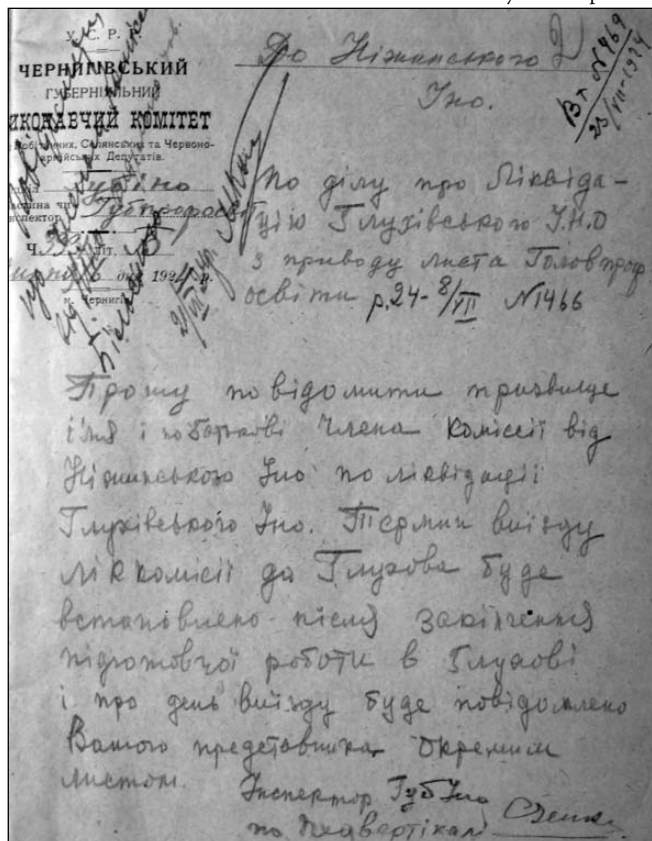 У. С. Р. Р.
ЧЕРНИГІВСЬКИЙ
ГУБЕРНІЯЛЬНИЙ
ИКОНАВЧИЙ КОМІТЕТ
Робітничих, Селянських та Червоно-
армійських Депутатів.
Губіно
Губпрофосвіт
Ч.
192 р.
м. Чернигів
До Ніжинського
Іно.
Вх №469
23/VII-1924
По ділу про Ліквіда-
цію Глухівського І.Н.О
з приводу листа Головпроф
освіти р.24-8/VII №1466
Прошу повідомити призвище
ім'я і по батькові члена коміссії від
Ніжинського Іно по ліквідації
Глухівського Іно. Термин виїзду
ліккомісії до Глухова буде
встановлено після закінчення
підготовчої роботи в Глухові
і про день виїзду буде повідомлено
Вашого представника окремим
листом.
Інспектор Губ Іно
по Педвертікалі